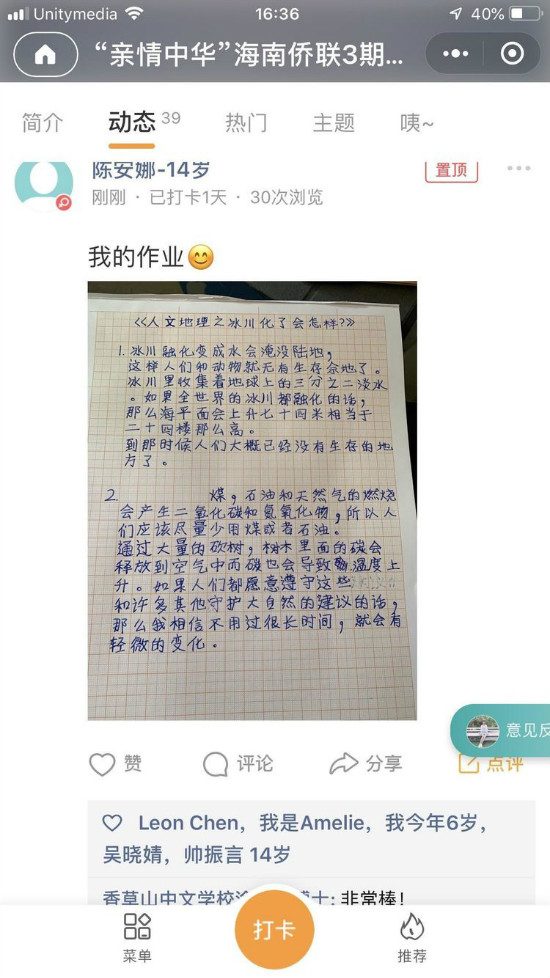 Unitymedia 16:36 40%
“亲情中华”海南侨联3期...
简介 动态 39 热门 主题 咦~
陈安娜-14岁 置顶
刚刚 · 已打卡1天 · 30次浏览
我的作业😊
《人文地理之冰川化了会怎样?》
1. 冰川融化变成水会淹没陆地,
这样人们和动物就无有生存余地了。
冰川里收集着地球上的三分之二淡水
。如果全世界的冰川都融化的话,
那么海平面会上升七十四米相当于
二十四楼那么高。
到那时候人们大概已经没有生存的地
方了。
2 煤,石油和天然气的燃烧
会产生二氧化碳和氮氧化物,所以人
们应该尽量少用煤或者石油。
通过大量的砍树,树木里面的碳会
释放到空气中而碳也会导致温度上
升。如果人们都愿意遵守这些
和许多其他守护大自然的建议的话,
那么我相信不用过很长时间,就会有
轻微的变化。
赞 评论 分享 点评
意见反
Leon Chen，我是Amelie，我今年6岁，
吴晓婧，帅振言 14岁
香草山中文学校 士: 非常棒!
菜单 打卡 推荐